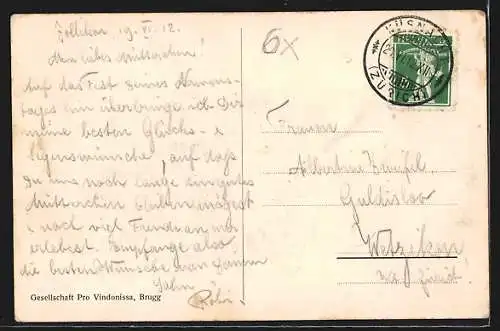 Zollikon 19. VI. 12.
Mein liebes Mütterchen!
Auf das Fest Deines Namens-
tages hin überbringe ich Dir
meine besten Glücks- &
Segenswünsche, auf dass
Du uns noch lange ein gutes
Mütterchen bleiben mögest
& noch viel Freude an
erlebest. Empfange also
die besten Wünsche von Deinem
Sohn
Röbi.
Gesellschaft Pro Vindonissa, Brugg
6x
KÜSNACHT
(ZÜRICH)
Frauen
Albertine Zweifel
Guldisloo
Wetzikon
Kt. Zürich!